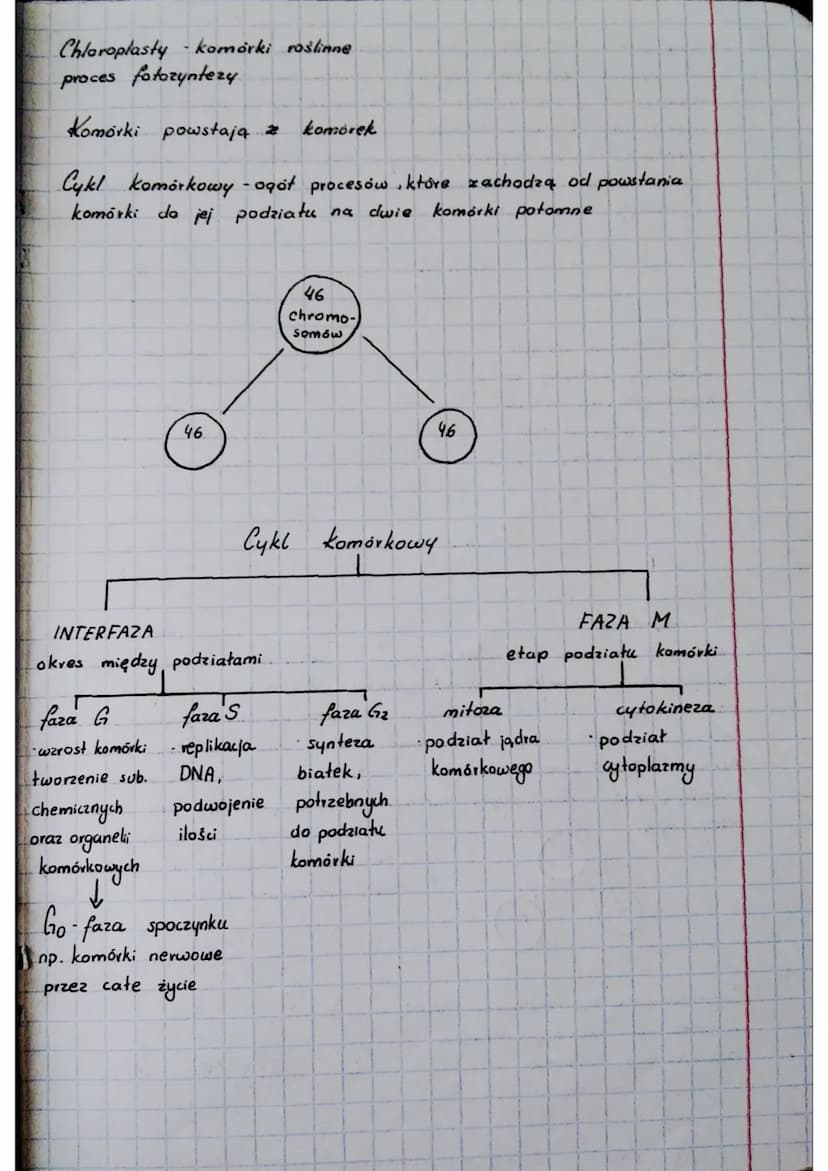 Chloroplasty - komórki roślinne
proces fotozyntezy
Komórki powstają z komórek
Cykl komórkowy - ogół procesów, które zachodzą od powstania
komórki do jej podziału na dwie komórki potomne
46
chromo-
somów
46
46
Cykl komórkowy
INTERFAZA
okres między podziałami
FAZA M
etap podziału komórki
faza G
· wzrost komórki
tworzenie sub.
chemicznych
oraz organelli
komórkowych
faza S
· replikacja
DNA,
podwojenie
ilości
faza G2
· synteza
białek,
potrzebnych
do podziału
komórki
mitoza
· podział jądra
komórkowego
cytokineza
· podział
cytoplazmy
↓
G0 - faza spoczynku
np. komórki nerwowe
przez całe życie